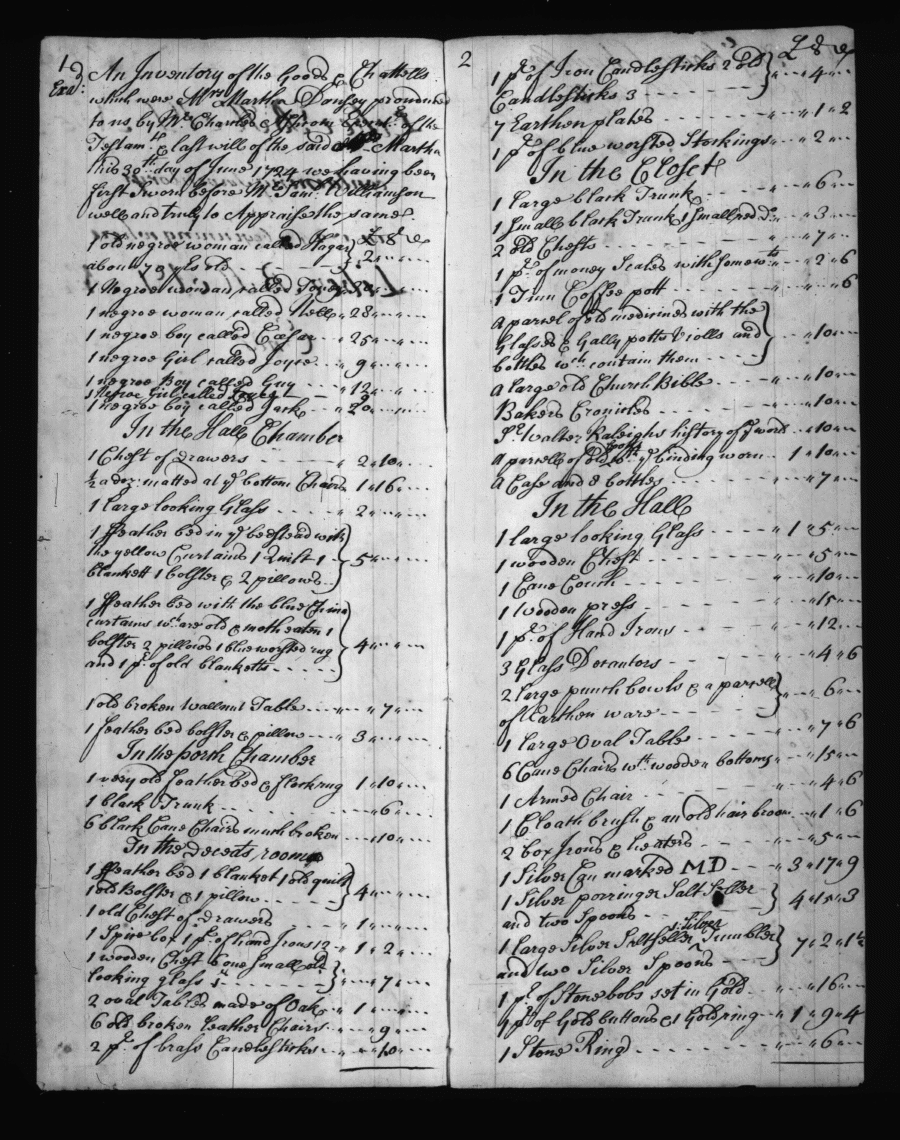 1
Exd:
An Inventory of the Goods & Chattells
which were Mrs. Martha Dansey produced
to us by Mr. Charles & of the
Testamt. & last will of the said Martha
this 30th. day of June 1724 we having been
first sworn before Mr. Saml.
well and truly to Appraise the same.
£ S d
1 old negroe woman called Hagar
about 70 yrs old } 2 " " " "
1 Negroe woman called
1 negroe woman called Nell " 28 " " "
1 negroe boy called Cæsar " 25 " " "
1 negroe Girl called Joyce " 9 " " "
1 negroe Boy called Guy " 12 " "
1 Negroe Girl called
1 negroe boy called Jack " 20 " "
In the Hall Chamber
1 Chest of drawers " 2 " 10 "
½ a doz: matted at ye bottom Chairs 1 " 16 "
1 large looking Glass " 2 " "
1 ffeather bed in ye bedstead with
the yellow Curtains 1 Quilt 1
blankett 1 bolster & 2 pillows } 5 " "
1 ffeather bed with the blue China
curtains wch. are old & moth eaten 1
bolster 2 pillows 1 blue worsted rug
and 1 pr. of old blanketts } 4 " "
1 old broken wallnut Table " " 7 "
1 feather bed bolster & pillow " 3 " "
In the porch Chamber
1 very old feather Bed & flock rug 1 " 10 "
1 black Trunk " " 6 "
6 black Cane Chairs much broken " 10 "
In the room
1 ffeather bed 1 blanket 1 old quilt
1 old Bolster & 1 pillow } 4 " "
1 old Chest of drawers " 1 " "
1 Spice box 1 pr. of hand Irons 12 " 1 " 2 "
1 wooden Chest & one small old
looking glass } " 7 "
2 oval Tables made of Oak " 1 " "
6 old broken Leather Chairs " " 9 "
2 pr. of brass Candlesticks " " 10 "
2
£ S d
1 pr. of Iron Candlesticks 2 old
Candlesticks 3 } " " 4 "
7 Earthen plates " " 1 " 2
1 pr. of blue worsted Stockings " " 2 "
In the Closet
1 Large black Trunk " " 6 "
1 Small black Trunk & 1 Small red Do. " " 3 "
2 old Chests " " 7 "
1 pr. of money Scales with some wts. " " 2 " 6
1 Tinn Coffee pott " " " 6
A parcel of old medicines with the
Glasses & Gally potts Violls and
bottles wch. contain them } " " 10 "
A large old Church Bible " " 10 "
Bakers Cronicles " " 10 "
Sr. Walter Raleighs history of ye world " " 10 "
A parcell of old books ye binding worn 1 " 10 "
A Case and 8 bottles " " 7 "
In the Hall
1 large looking Glass " 1 " 5 "
1 wooden Chest " " 5 "
1 Cane Couch " " 10 "
1 Wooden press " " 15 "
1 pr. of Hand Irons " " 12 "
3 Glass Decantors " " 4 " 6
2 large punch bowls & a parcell
of Earthen ware } " " 6 "
1 large Oval Table " " 7 " 6
6 Cane Chairs wth. wooden bottoms " " 15 "
1 Armed Chair " " 4 " 6
1 Cloath brush & an old hair broom " " 1 " 6
2 box Irons & heaters " " 5 "
1 Silver Can marked MD " 3 " 17 " 9
1 Silver porringer Salt Seller
and two Spoons } 4 " 15 " 3
1 large Silver Saltseller 1 Silver Tumbler
and two Silver Spoons } 7 " 2 " 1½
1 pr. of Stone bobs set in Gold " " 16 "
4 pr. of Gold buttons & 1 Gold ring " 1 " 9 " 4
1 Stone Ring " " 6 "